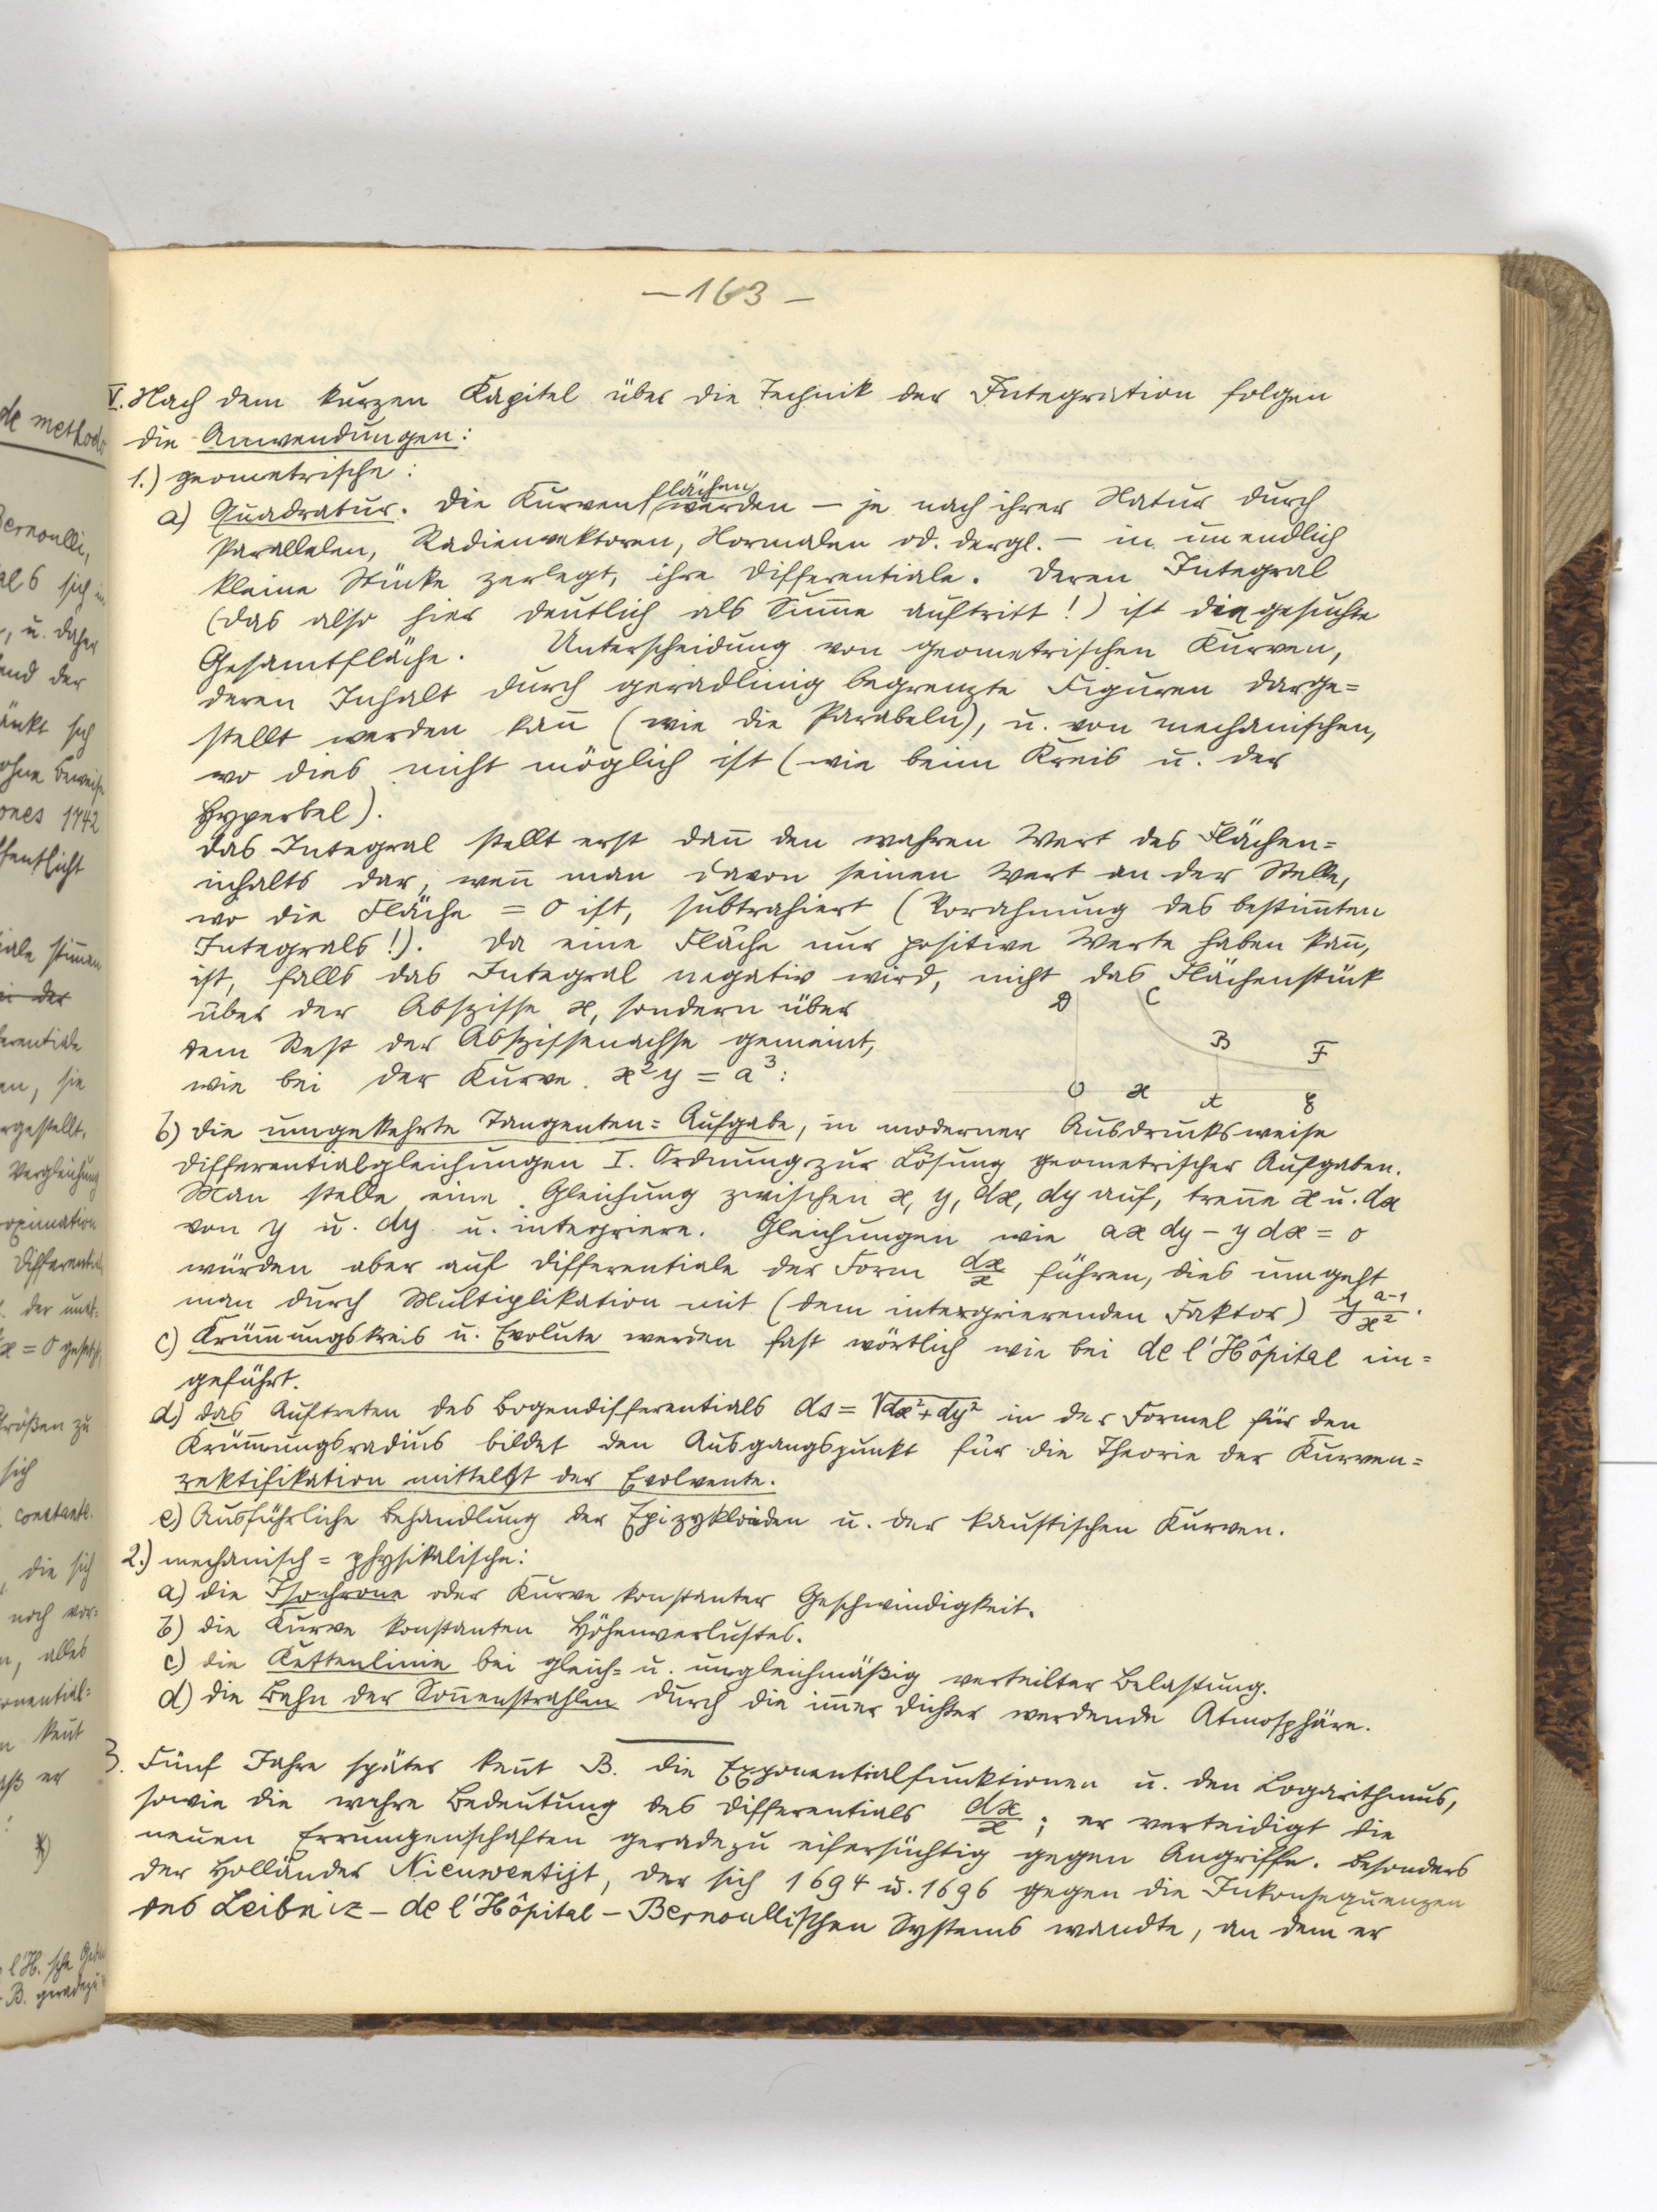 — 163 —
V. Nach dem kurzen Kapitel über die Technik der Integration folgen
die Anwendungen:
1.) geometrische:
a) Quadratur. Die Kurvenflächen werden — je nach ihrer Natur durch
Parallelen, Radienvektoren, Normalen od. dergl. — in unendlich
kleine Stücke zerlegt, ihre Differentiale. Deren Integral
(das also hier deutlich als Summe auftritt!) ist die gesuchte
Gesamtfläche. Unterscheidung von geometrischen Kurven,
deren Inhalt durch geradlinig begrenzte Figuren darge=
stellt werden kann (wie die Parabeln), u. von mechanischen,
wo dies nicht möglich ist (wie beim Kreis u. der
Hyperbel).
Das Integral stellt erst dann den wahren Wert des Flächen=
inhalts dar, wenn man davon seinen Wert an der Stelle,
wo die Fläche = 0 ist, subtrahiert (Vorahnung des bestimmten
Integrals!). Da eine Fläche nur positive Werte haben kann,
ist, falls das Integral negativ wird, nicht das Flächenstück
über der Abszisse x, sondern über
dem Rest der Abszissenachse gemeint,
wie bei der Kurve x²y = a³:
D C
B F
O x A E
b) die umgekehrte Tangenten=Aufgabe, in moderner Ausdrucksweise
Differentialgleichungen I. Ordnung zur Lösung geometrischer Aufgaben.
Man stelle eine Gleichung zwischen x, y, dx, dy auf, trenne x u. dx
von y u. dy u. integriere. Gleichungen wie ax dy – y dx = 0
würden aber auf Differentiale der Form dx/x führen, dies umgeht
man durch Multiplikation mit (dem integrierenden Faktor) y^(a-1)/x².
c) Krümmungskreis u. Evolute werden fast wörtlich wie bei de l'Hôpital ein=
geführt.
d.) das Auftreten des Bogendifferentials ds = √dx²+dy² in der Formel für den
Krümmungsradius bildet den Ausgangspunkt für die Theorie der Kurven=
rektifikation mittelst der Evolvente.
e.) Ausführliche Behandlung der Epizykloiden u. der kaustischen Kurven.
2.) mechanisch=physikalische:
a) die Isochrone oder Kurve konstanter Geschwindigkeit.
b) die Kurve konstanten Höhenverlustes.
c) die Kettenlinie bei gleich= u. ungleichmäßig verteilter Belastung.
d) die Bahn der Sonnenstrahlen durch die immer dichter werdende Atmosphäre.
3. Fünf Jahre später kennt B. die Exponentialfunktionen u. den Logarithmus,
sowie die wahre Bedeutung des Differentials dx/x; er verteidigt die
neuen Errungenschaften geradezu eifersüchtig gegen Angriffe. Besonders
der Holländer Nieuwentijt, der sich 1694 u. 1696 gegen die Inkonsequenzen
des Leibniz – de l'Hôpital – Bernoullischen Systems wandte, an dem er